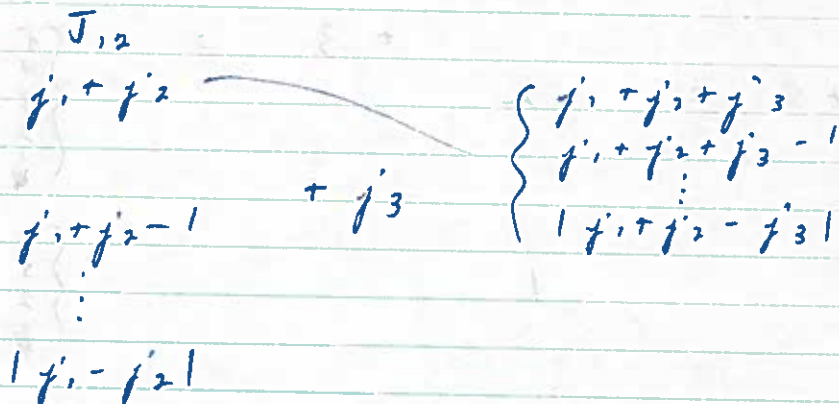 J₁₂
j₁ + j₂
j₁ + j₂ - 1
⋮
| j₁ - j₂ |
+ j₃
j₁ + j₂ + j₃
j₁ + j₂ + j₃ - 1
⋮
| j₁ + j₂ - j₃ |